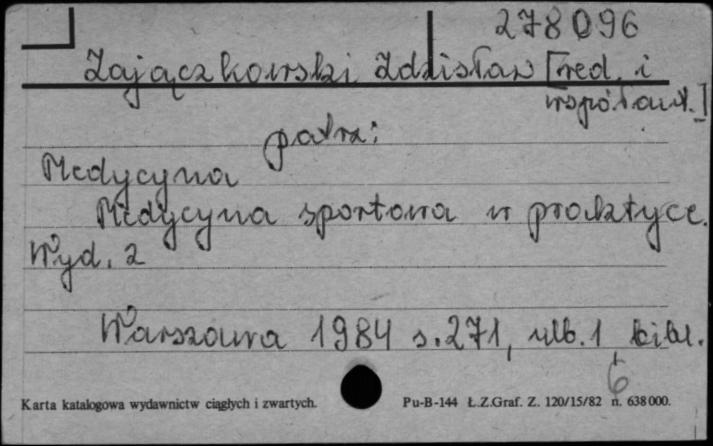 278096
Zajączkowski Zdzisław [red. i
współaut.]
patrz:
Medycyna
Medycyna sportowa w praktyce.
Wyd. 2
Warszawa 1984 s. 271, ulb. 1 bibl.
6
Karta katalogowa wydawnictw ciągłych i zwartych. Pu-B-144 Ł.Z.Graf. Z. 120/15/82 n. 638 000.